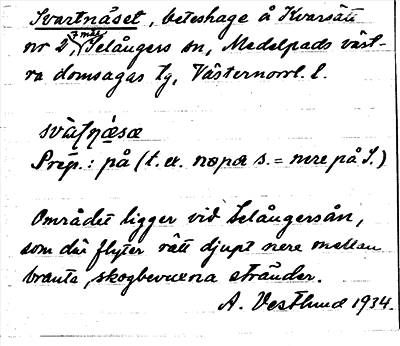 Svartnäset, beteshage å Kvarsätt
nr 2, 7 mål Selångers sn, Medelpads väst-
ra domsagas tg, Västernorrl. l.
Prep.: på (t. ex. nopa s. = nere på S.)
Området ligger vid Selångersån,
som där flyter rätt djupt nere mellan
branta, skogbevuxna stränder.
A. Vestlund 1934.